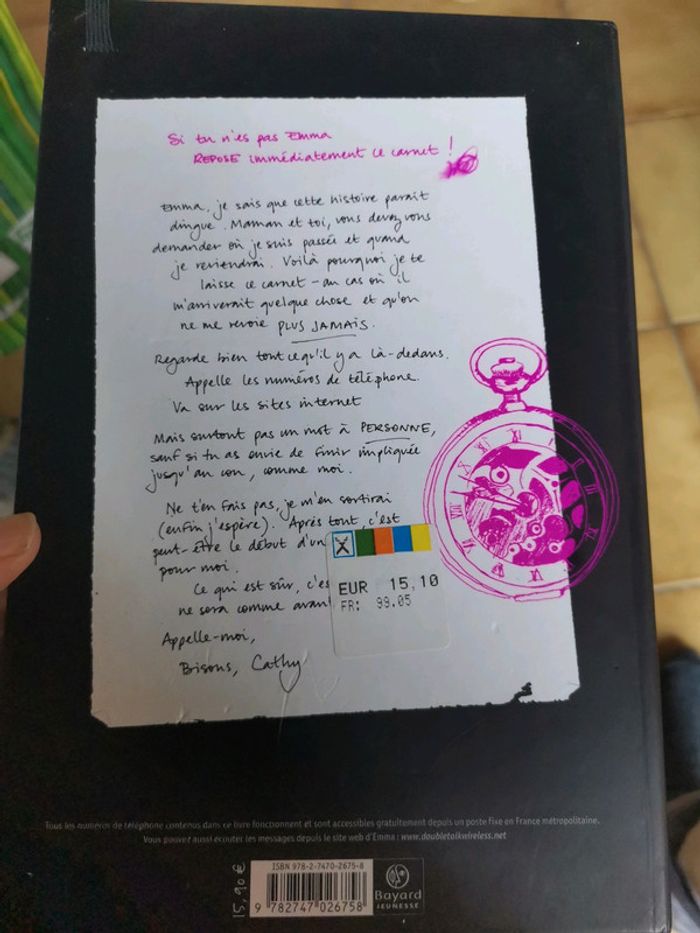 Si tu n'es pas Emma
REPOSE immédiatement ce carnet !
Emma, je sais que cette histoire paraît
dingue. Maman et toi, vous devez vous
demander où je suis passée et quand
je reviendrai. Voilà pourquoi je te
laisse ce carnet - au cas où il
m'arriverait quelque chose et qu'on
ne me revoie PLUS JAMAIS.
Regarde bien tout ce qu'il y a là-dedans.
Appelle les numéros de téléphone.
Va sur les sites internet
Mais surtout pas un mot à PERSONNE,
sauf si tu as envie de finir impliquée
jusqu'au cou, comme moi.
Ne t'en fais pas, je m'en sortirai
(enfin j'espère). Après tout, c'est
peut-être le début d'un
pour moi.
Ce qui est sûr, c'es
ne sera comme avan
Appelle-moi,
Bisous, Cathy
EUR 15,10
FR: 99.05
XII
I
II
III
VIII
Tous les numéros de téléphone contenus dans ce livre fonctionnent et sont accessibles gratuitement depuis un poste fixe en France métropolitaine.
Vous pouvez aussi écouter les messages depuis le site web d'Emma : www.doubletalkwireless.net
15,90 €
ISBN 978-2-7470-2675-8
9 782747 026758
Bayard
JEUNESSE